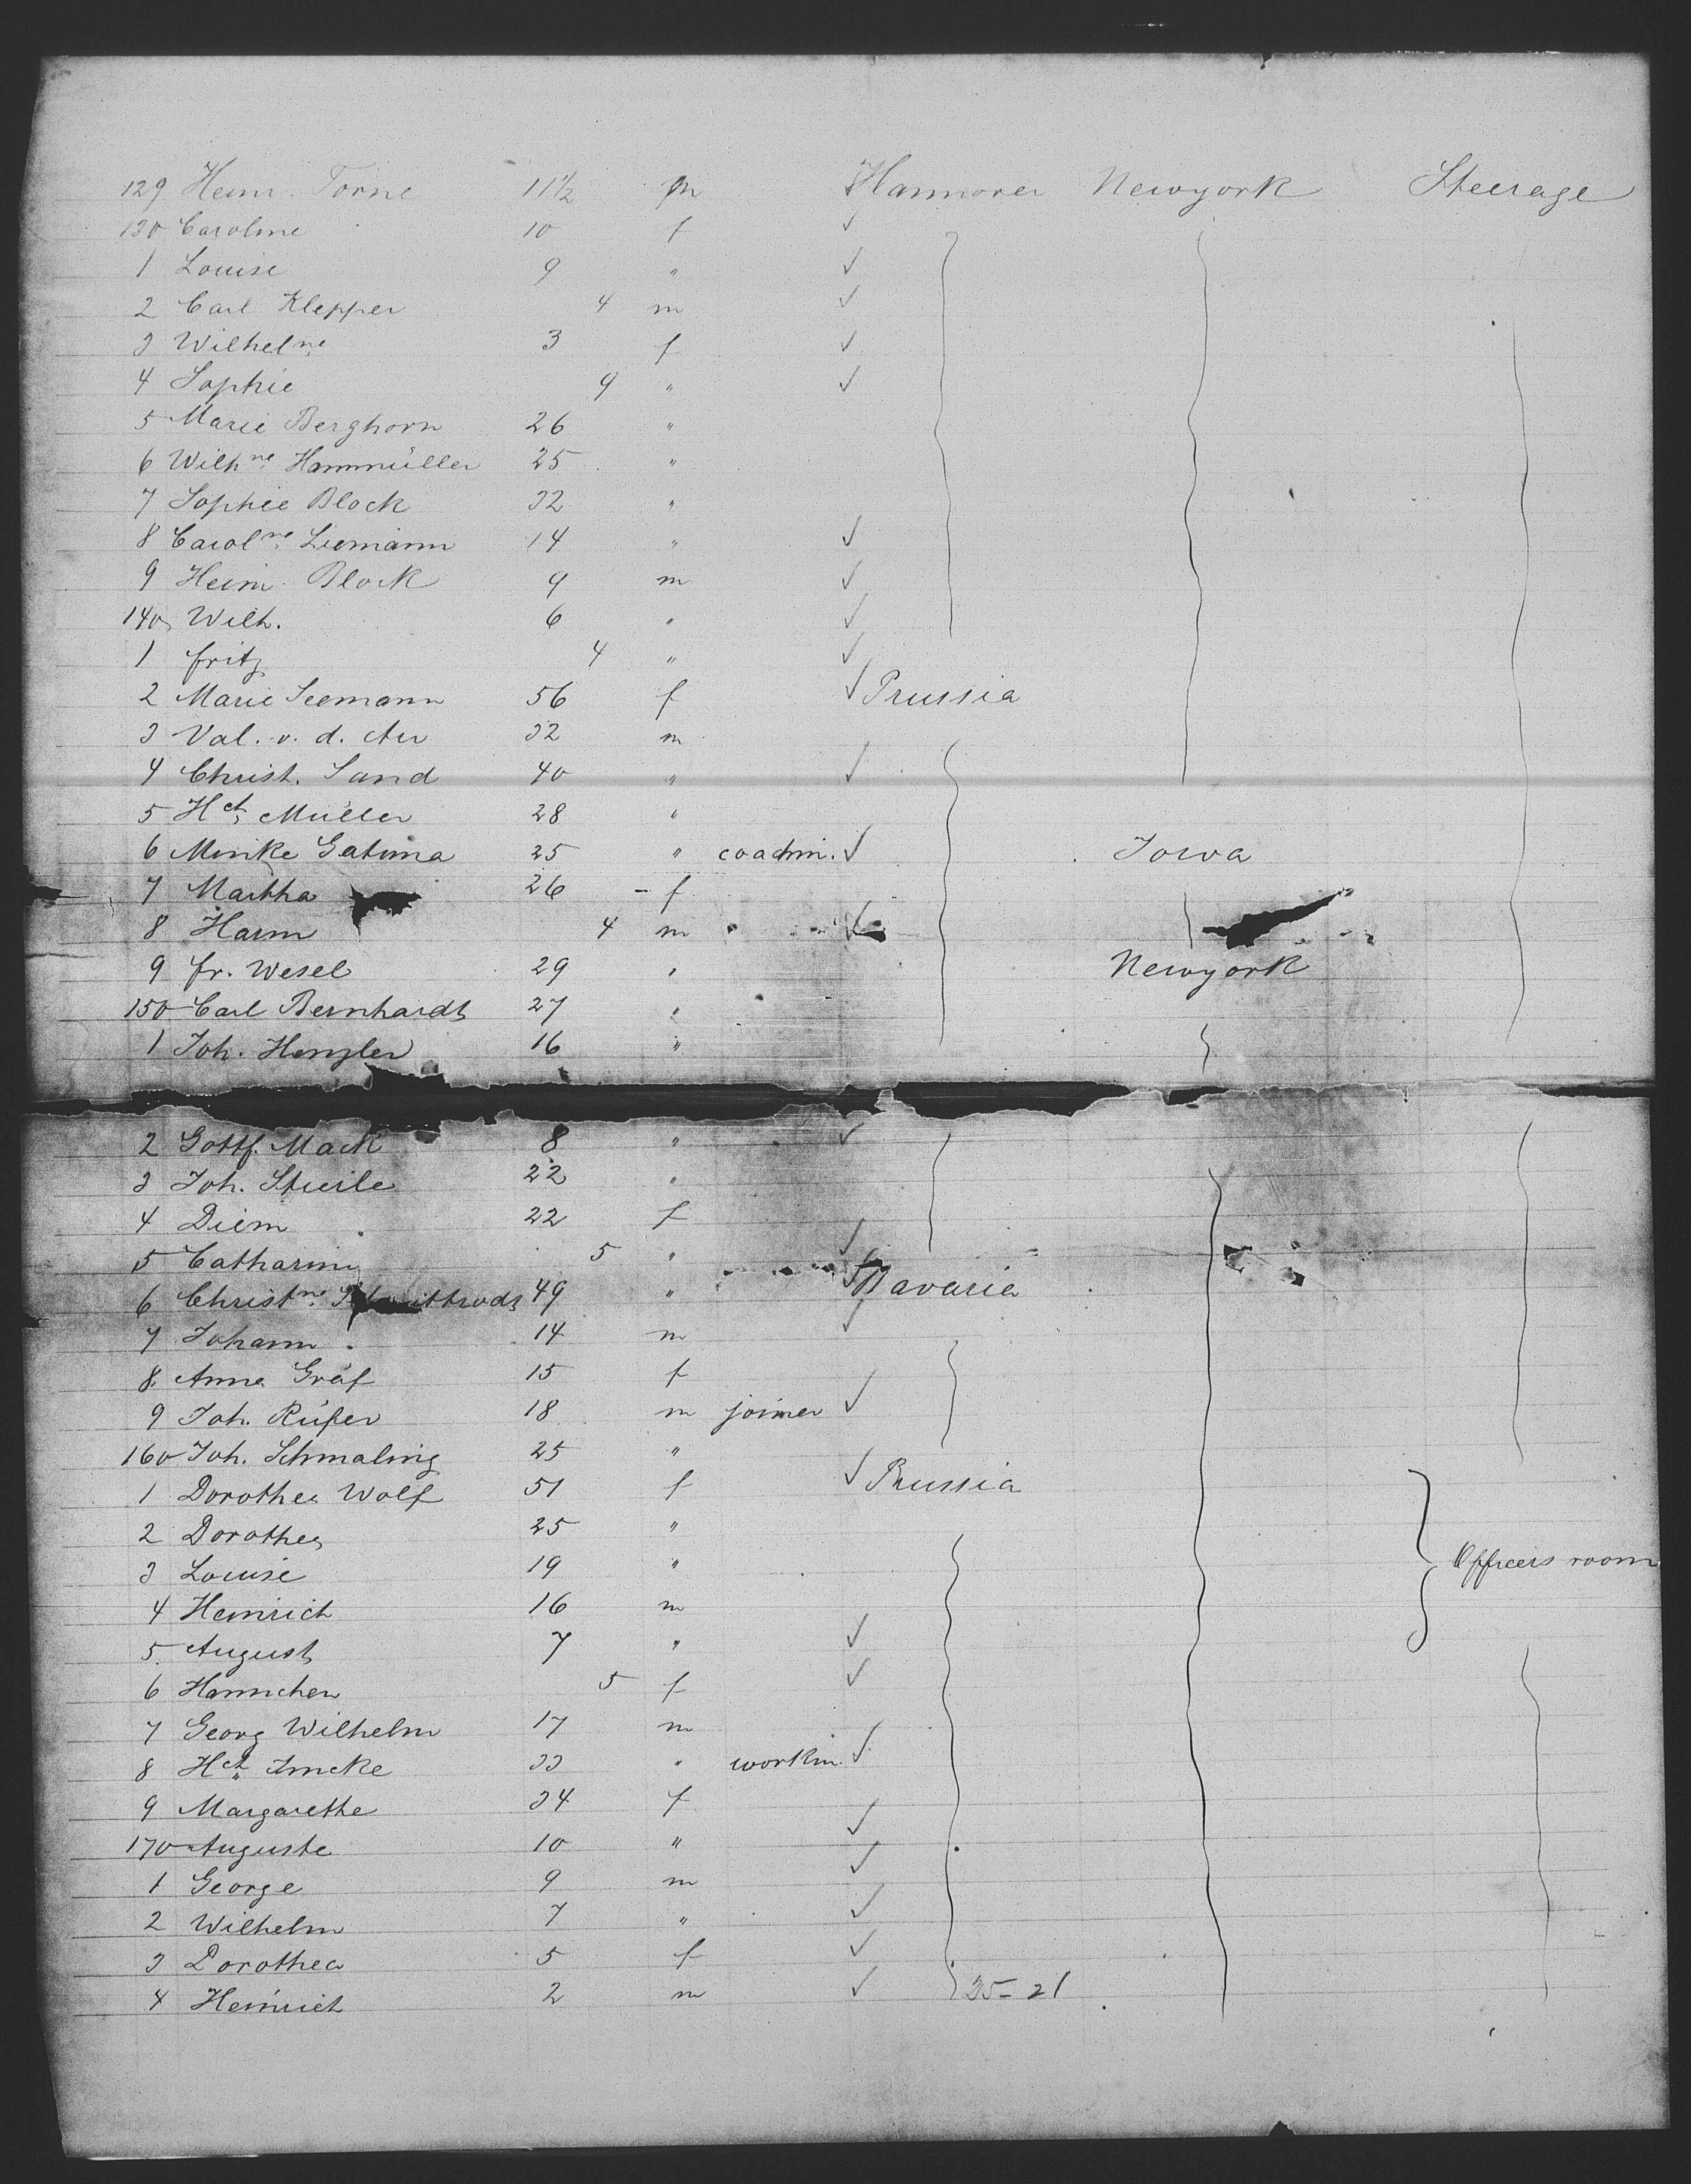 129 Heinr. Torne 11½ m Hannover Newyork Steerage
130 Caroline 10 f
1 Louise 9 "
2 Carl Klepper 4 m
3 Wilhelne 3 f
4 Sophie 9 "
5 Marie Berghorn 26 "
6 Wilhne Hammüller 25 "
7 Sophie Block 32 "
8 Carolne Liemann 14 "
9 Heinr. Block 9 m
140 Wilh. 6 "
1 Fritz 4 "
2 Marie Seemann 56 f Prussia
3 Val. v. d. Au 32 m
4 Christ. Sand 40 "
5 Hch Müller 28 "
6 Minke Gatena 25 " coachm. Iowa
7 Martha 26 - f
8 Harm 4 m
9 Fr. Wesel 29 " Newyork
150 Carl Bernhardt 27 "
1 Joh. Hengler 16 "
2 Gottf. Mack 8 "
3 Joh. Steile 22 "
4 Diem 22 f
5 Catharine 5 "
6 Christne 49 " Bavaria
7 Johann 14 m
8 Anna Gräf 15 f
9 Joh. Küfer 18 m joiner
160 Joh. Schmaling 25 "
1 Dorothea Wolf 51 f Prussia
2 Dorothea 25 "
3 Louise 19 " Officers room
4 Heinrich 16 m
5 August 7 "
6 Hannchen 5 f
7 Georg Wilhelm 17 m
8 Hch Imcke 33 " workm.
9 Margarethe 34 f
170 Auguste 10 "
1 George 9 m
2 Wilhelm 7 "
3 Dorothea 5 f
4 Heinrich 2 m 35-21